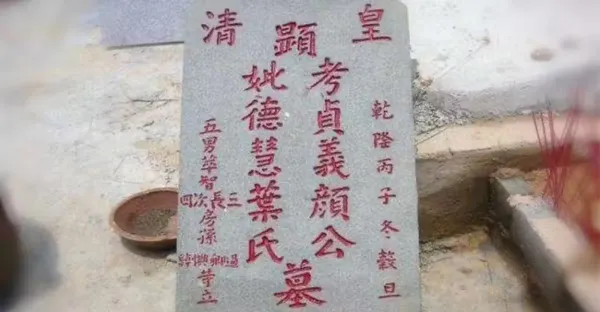 皇清
乾隆丙子冬穀旦
顯
考貞義顏公
妣德慧葉氏
墓
五男華智
三長次四
房孫
等立